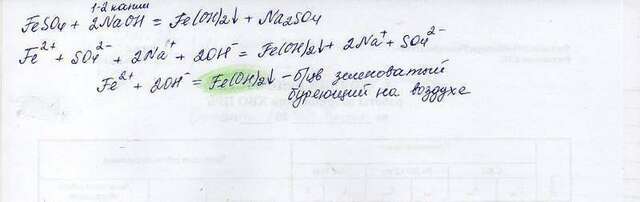 1-2 капли
FeSO4 + 2NaOH = Fe(OH)2↓ + Na2SO4
Fe²⁺ + SO4²⁻ + 2Na⁺ + 2OH⁻ = Fe(OH)2↓ + 2Na⁺ + SO4²⁻
Fe²⁺ + 2OH⁻ = Fe(OH)2↓ – зеленоватый
буреющий на воздухе